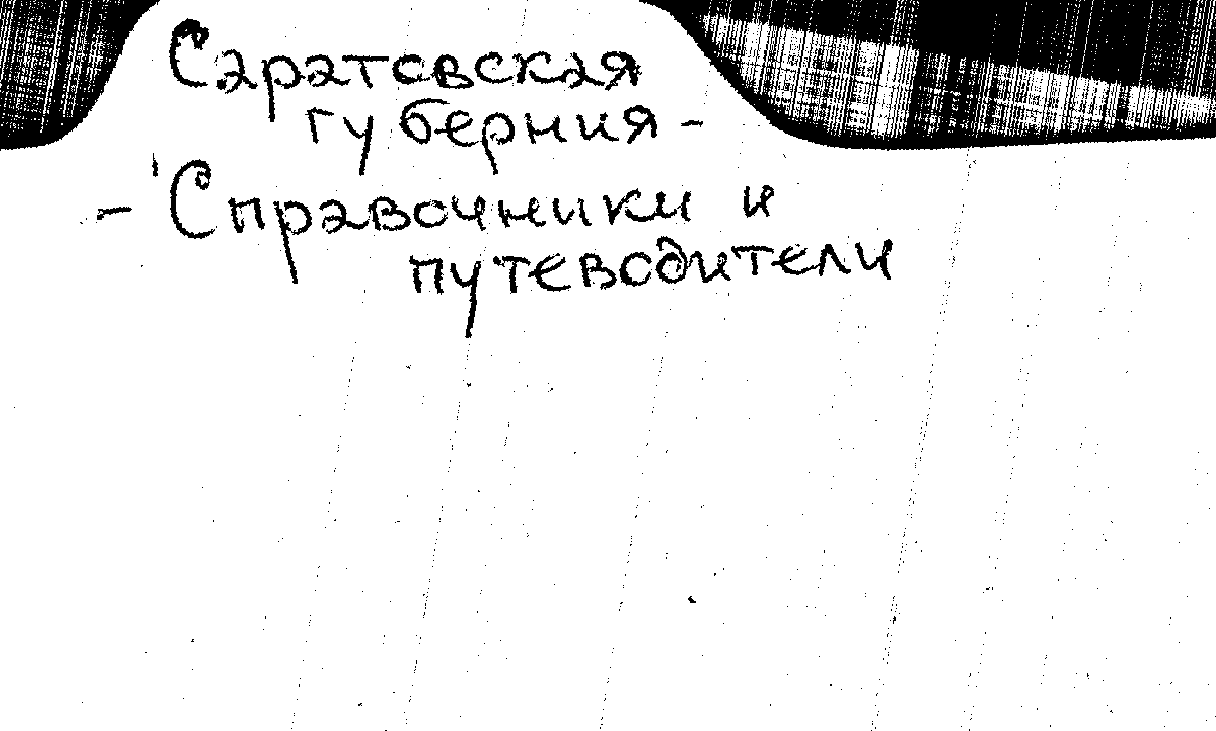 Саратовская
губерния -
- Справочники и
путеводители